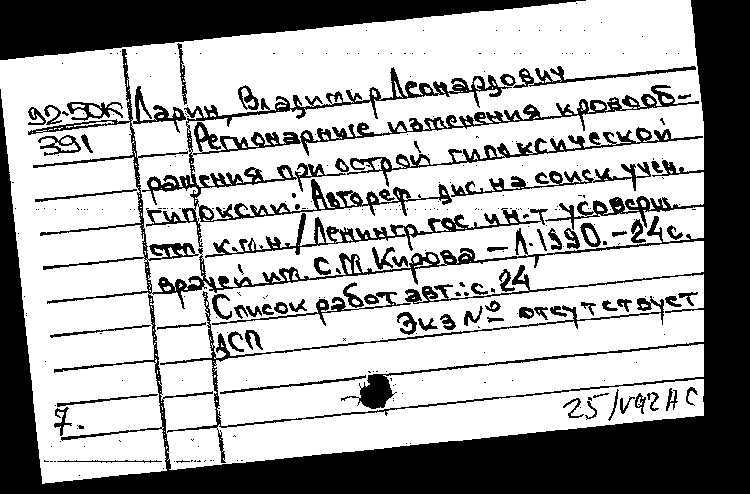 92-50К Ларин, Владимир Леонардович
391 Регионарные изменения кровооб-
ращения при острой гипоксической
гипоксии: Автореф. дис. на соиск. учен.
степ. к.м.н. / Ленингр. гос. ин-т усоверш.
врачей им. С.М. Кирова - Л. 1990. - 24 с.
Список работ авт.: с. 24
ДСП Экз № отсутствует
7.
25/V92 НС